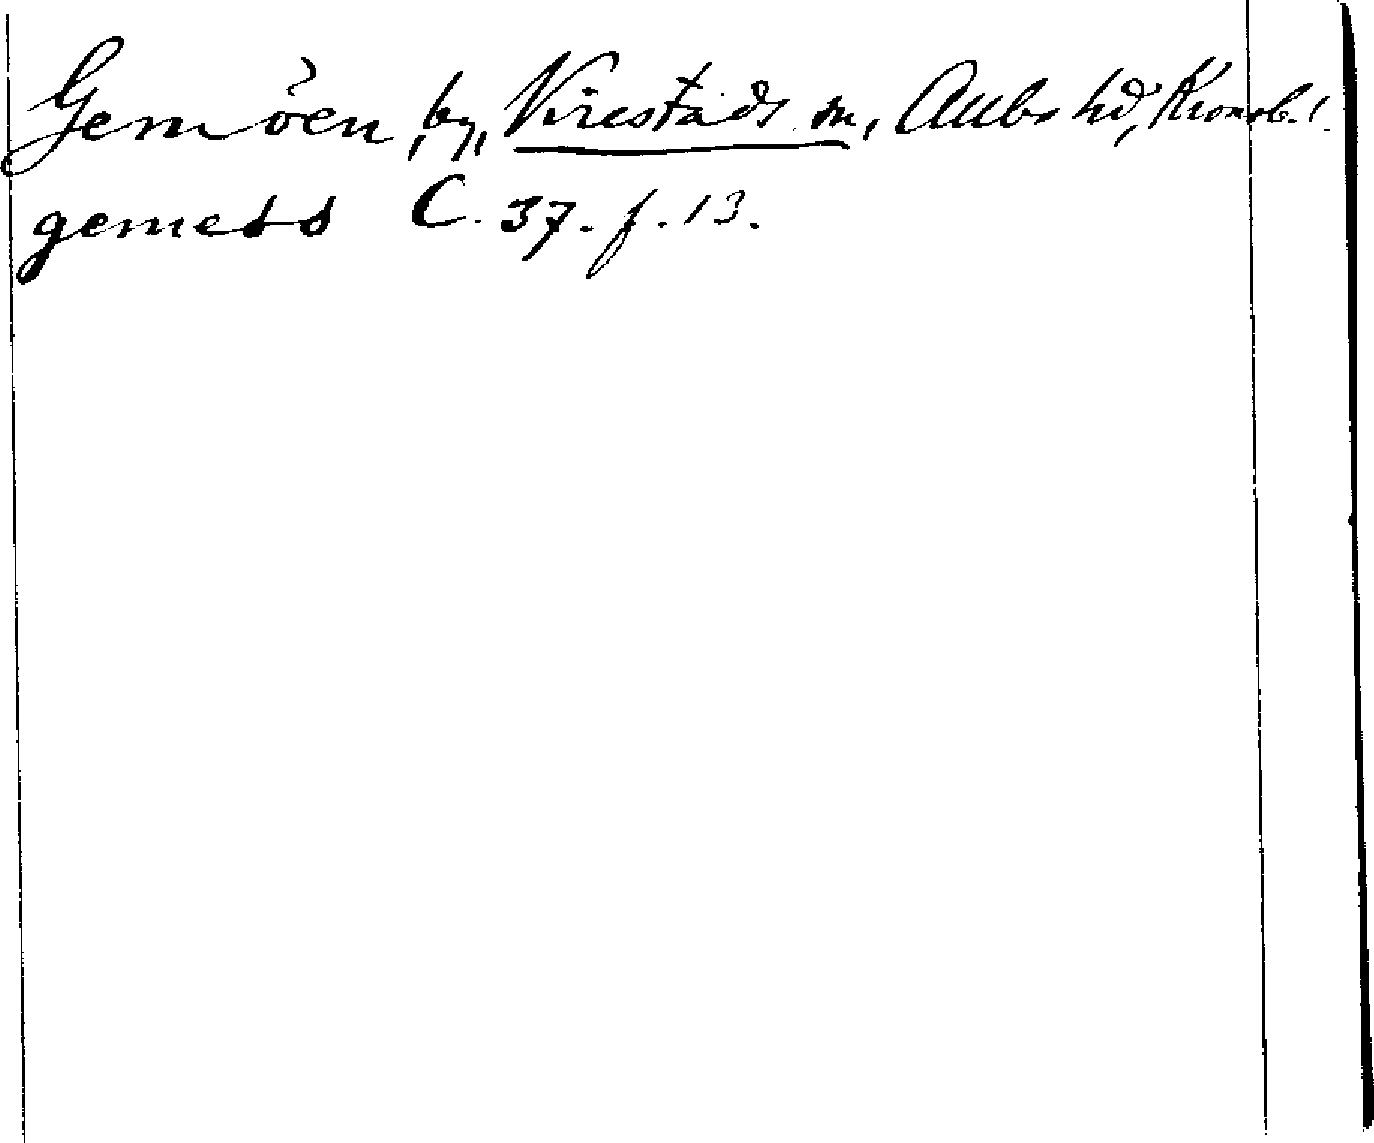 Gemöen, by, Virestads sn, Allbo hd, Kronob. l.
gemess C. 37. f. 13.